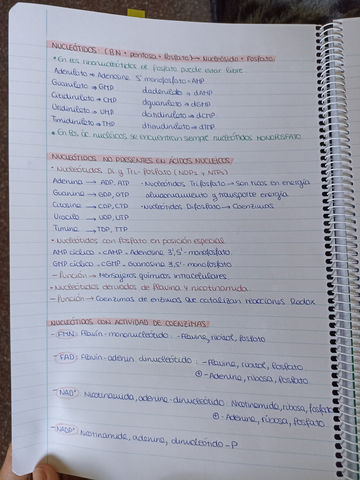 NUCLEÓTIDOS: (BN + pentosa + fosfato) → Nucleósido + Fosfato.
• En los ribonucleótidos el fosfato puede estar libre
Adenilato → Adenosina 5' monofosfato = AMP
Guanilato → GMP dadenilato → dAMP
Citidinilato → CMP dguanilato → dGMP
Uridinilato → UMP dcitidinilato → dCMP
Timidinilato → TMP dtimidinilato → dTMP
• En los ac. nucleicos se encuentran siempre nucleótidos MONOFOSFATO.
NUCLEÓTIDOS NO PRESENTES EN ÁCIDOS NUCLEICOS:
- Nucleótidos Di y Tri-Fosfato (NDPs y NTPs)
Adenina → ADP, ATP • Nucleótidos Trifosfato → Son ricos en energía
Guanina → GDP, GTP almacenamiento y transporte energía
Citosina → CDP, CTP • Nucleótidos Difosfato → Coenzimas.
Uracilo → UDP, UTP
Timina → TDP, TTP
• Nucleótidos con fosfato en posición especial
AMP cíclico - cAMP - Adenosina 3',5'- monofosfato
GMP cíclico - cGMP - Guanosina 3',5'- monofosfato
- Función → Mensajeros químicos intracelulares.
• Nucleótidos derivados de flavina y nicotinamida.
- Función → Coenzimas de enzimas que catalizan reacciones Redox
NUCLEÓTIDOS CON ACTIVIDAD DE COENZIMAS:
- FMN: Flavín-mononucleótido: - Flavina, ribitol, fosfato
- FAD: Flavín-adenin dinucleótido: - Flavina, ribitol, fosfato
⊕ - Adenina, ribosa, fosfato.
- NAD⁺: Nicotinamida, adenina-dinucleótido: Nicotinamida, ribosa, fosfato
⊕ - Adenina, ribosa, fosfato.
- NADP⁺: Nicotinamida, adenina, dinucleótido - P